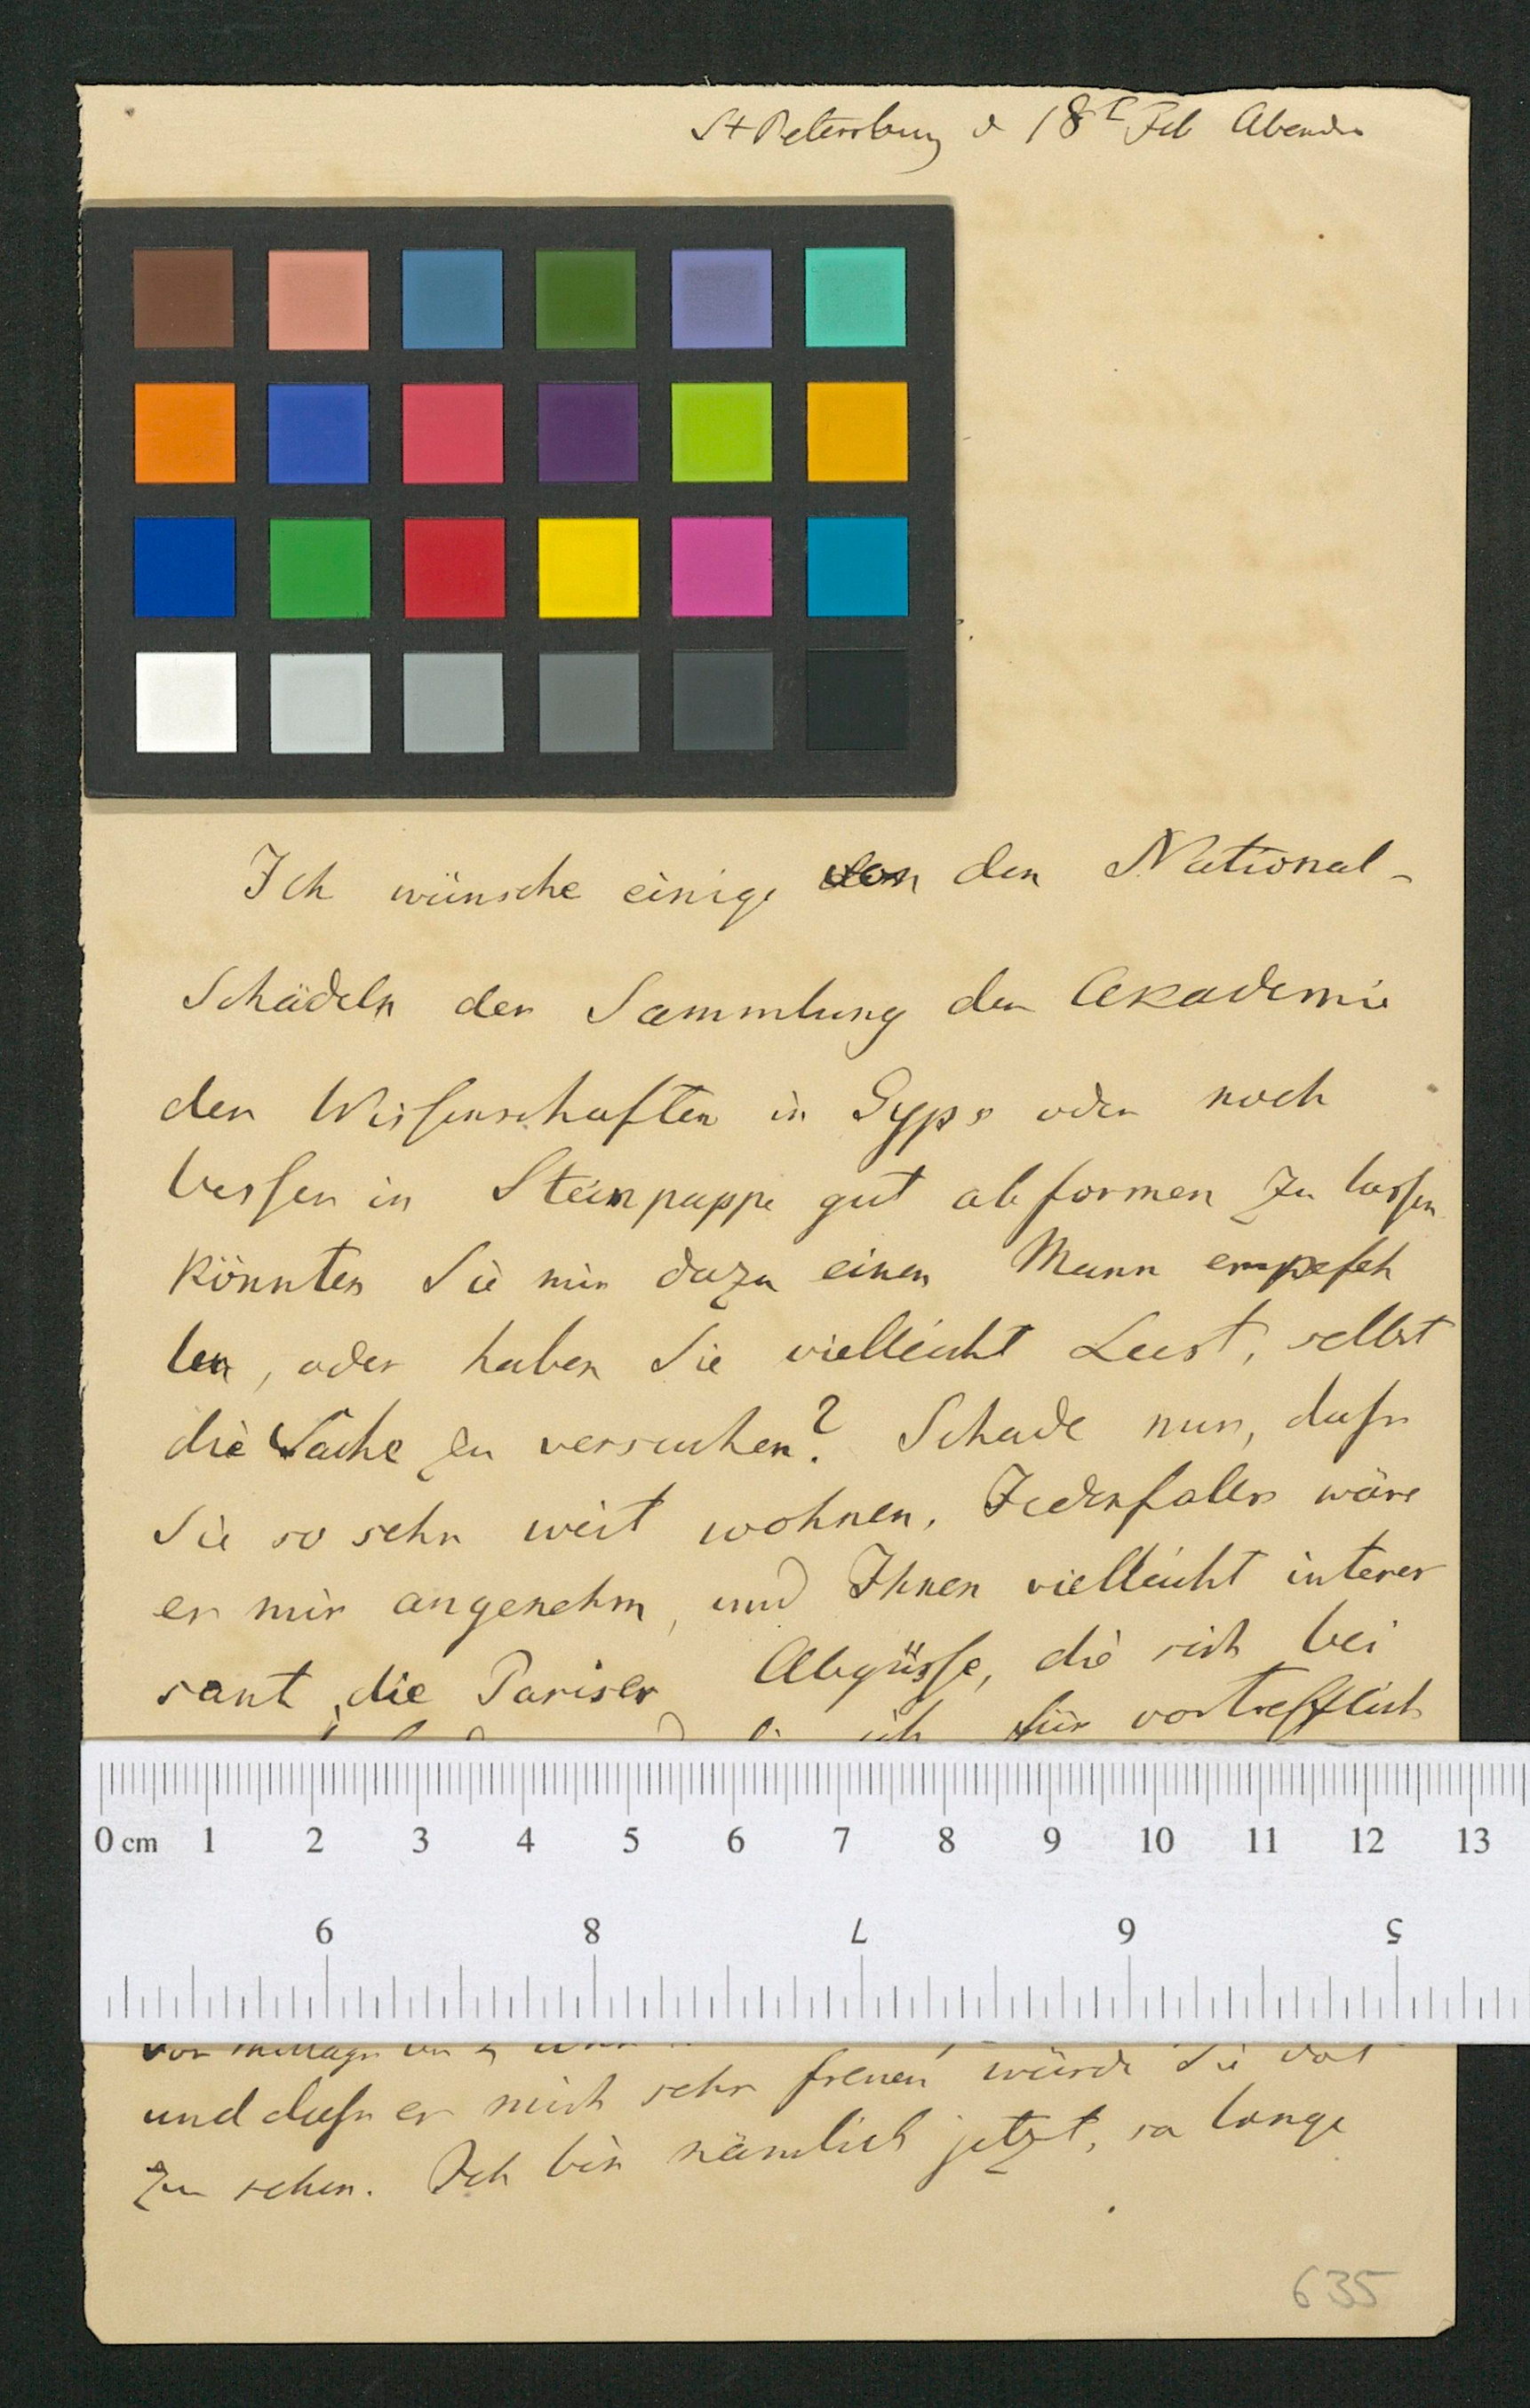 St Petersburg d 18t Feb Abends
Ich wünsche einige von den National-
Schädeln der Sammlung der Akademie
der Wissenschaften in Gyps oder noch
besser in Steinpappe gut abformen zu lassen
könnten Sie mir dazu einen Mann empfeh
len, oder haben Sie vielleicht Lust, selbst
die Sache zu versuchen? Schade nur, dass
Sie so sehr weit wohnen. Jedenfalls wäre
es mir angenehm, und Ihnen vielleicht interes
sant, die Pariser Abgüsse, die sich bei
ich für vortrefflich
0 cm 1 2 3 4 5 6 7 8 9 10 11 12 13
9 8 7 6 5
vormittags
und dass es mich sehr freuen würde Sie dort
zu sehen. Ich bin nämlich jetzt, so lange
635